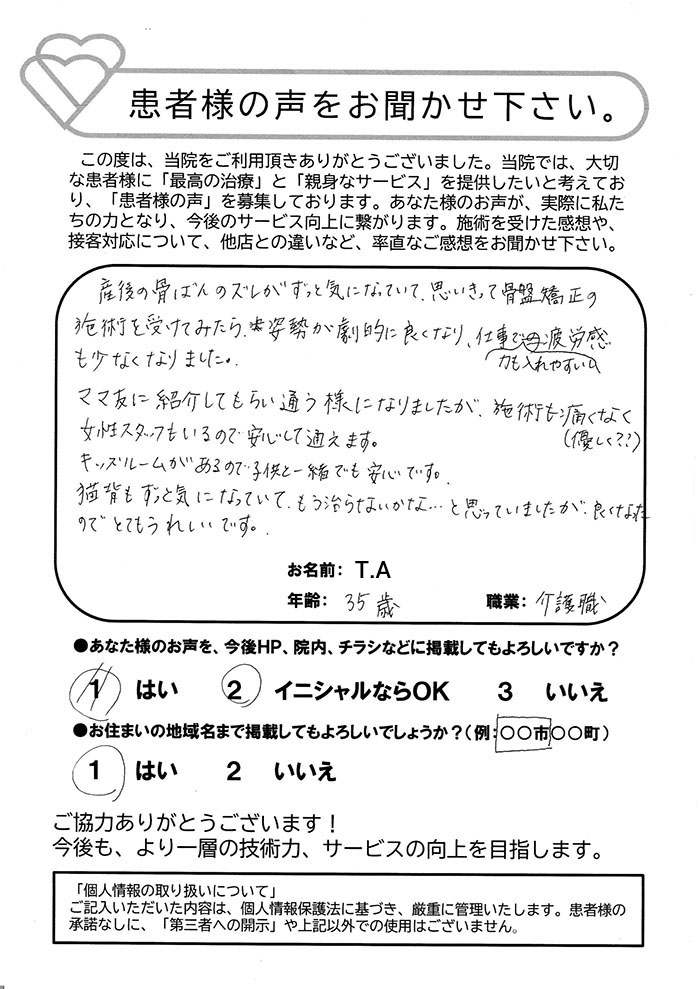 患者様の声をお聞かせ下さい。
この度は、当院をご利用頂きありがとうございました。当院では、大切
な患者様に「最高の治療」と「親身なサービス」を提供したいと考えてお
り、「患者様の声」を募集しております。あなた様のお声が、実際に私た
ちの力となり、今後のサービス向上に繋がります。施術を受けた感想や、
接客対応について、他店との違いなど、率直なご感想をお聞かせ下さい。
産後の骨ばんのズレがずっと気になっていて、思いきって骨盤矯正の
施術を受けてみたら、姿勢が劇的に良くなり、仕事で疲労感
も少なくなりました。
力も入れやすい
ママ友に紹介してもらい通う様になりましたが、施術も痛くなく
(優しく??)
女性スタッフもいるので安心して通えます。
キッズルームがあるので子供と一緒でも安心です。
猫背もずっと気になっていて、もう治らないかな…と思っていましたが、良くなった
のでとてもうれしいです。
お名前: T.A
年齢: 35歳 職業: 介護職
●あなた様のお声を、今後HP、院内、チラシなどに掲載してもよろしいですか?
1 はい 2 イニシャルならOK 3 いいえ
●お住まいの地域名まで掲載してもよろしいでしょうか?(例:○○市○○町)
1 はい 2 いいえ
ご協力ありがとうございます!
今後も、より一層の技術力、サービスの向上を目指します。
「個人情報の取り扱いについて」
ご記入いただいた内容は、個人情報保護法に基づき、厳重に管理いたします。患者様の
承諾なしに、「第三者への開示」や上記以外での使用はございません。